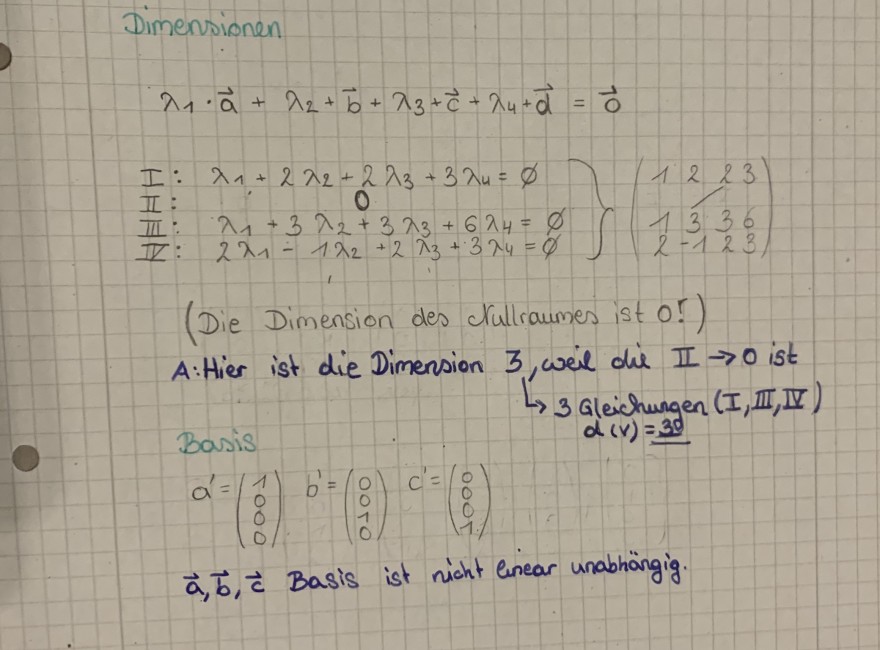 Dimensionen
λ1 · a⃗ + λ2 + b⃗ + λ3 + c⃗ + λ4 + d⃗ = 0⃗
I: λ1 + 2 λ2 + 2 λ3 + 3 λ4 = ∅
II: 0
III: λ1 + 3 λ2 + 3 λ3 + 6 λ4 = ∅
IV: 2 λ1 - 1 λ2 + 2 λ3 + 3 λ4 = ∅
( 1 2 2 3 )
( 1 3 3 6 )
( 2 -1 2 3 )
(Die Dimension des Nullraumes ist 0!)
A: Hier ist die Dimension 3, weil die II → 0 ist
↳ 3 Gleichungen (I, III, IV)
d (v) = 3D
Basis
a' = (1 0 0 0) b' = (0 0 1 0) c' = (0 0 0 1)
a⃗, b⃗, c⃗ Basis ist nicht linear unabhängig.